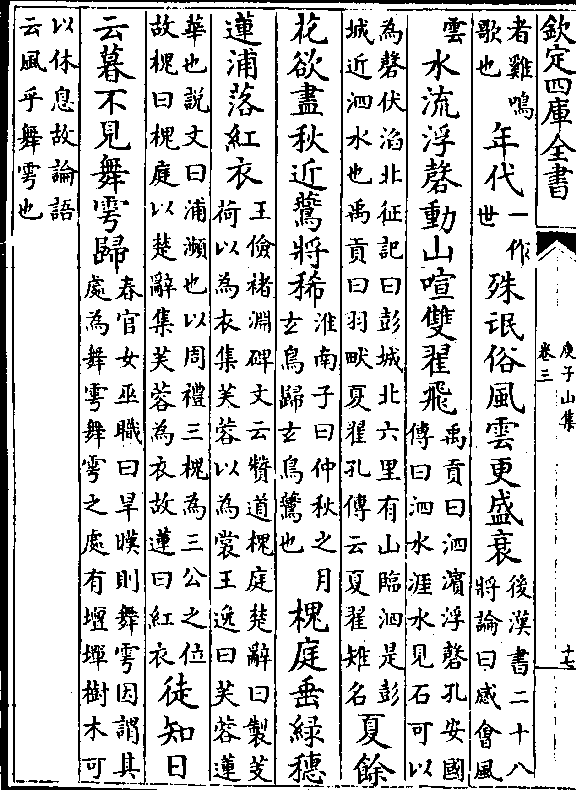 欽定四庫全書
庚子山集
卷三
十七
者雞鳴
歌也
年代
一作
世
殊氓俗風雲更盛衰
後漢書二十八
將論曰感會風
雲
水流浮磬動山喧雙翟飛
禹貢曰泗濵浮磬孔安國
傳曰泗水涯水見石可以
為磬伏滔北征記曰彭城北六里有山臨泗是彭
城近泗水也禹貢曰羽畎夏翟孔傳云夏翟雉名
夏餘
花欲盡秋近鷰將稀
淮南子曰仲秋之月
玄鳥歸玄鳥鷰也
槐庭垂綠穗
蓮浦落紅衣
王儉褚淵碑文云贊道槐庭楚辭曰製芰
荷以為衣集芙蓉以為裳王逸曰芙蓉蓮
華也説文曰浦瀕也以周禮三槐為三公之位
故槐曰槐庭以楚辭集芙蓉為衣故蓮曰紅衣
徒知日
云暮不見舞雩歸
春官女巫職曰旱暵則舞雩因謂其
處為舞雩舞雩之處有壇墠樹木可
以休息故論語
云風乎舞雩也